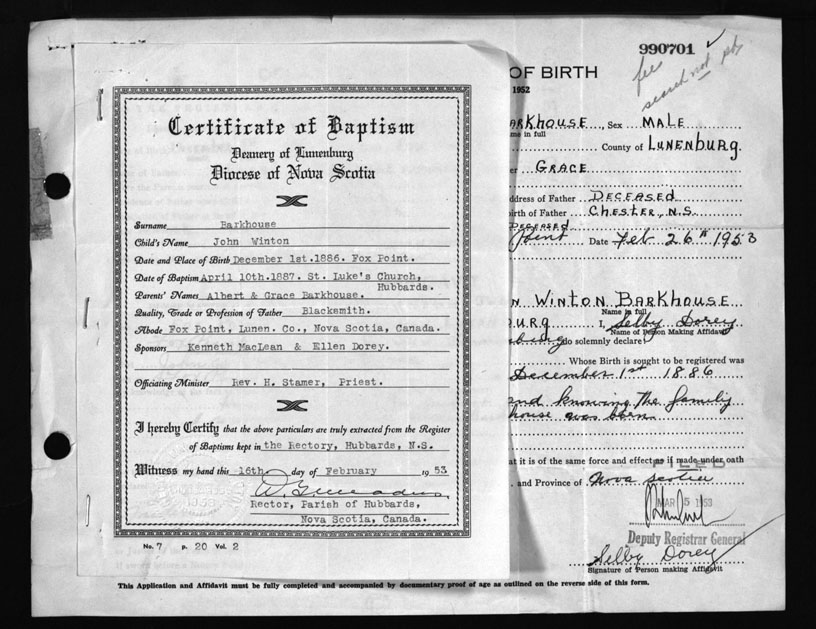 990701
fee
search not pd
OF BIRTH
1952
Certificate of Baptism
Deanery of Lunenburg
Diocese of Nova Scotia
Surname Barkhouse
Child's Name John Winton
Date and Place of Birth December 1st.1886. Fox Point.
Date of Baptism April 10th.1887. St. Luke's Church,
Hubbards.
Parents' Names Albert & Grace Barkhouse.
Quality, Trade or Profession of Father Blacksmith.
Abode Fox Point, Lunen. Co., Nova Scotia, Canada.
Sponsors Kenneth MacLean & Ellen Dorey.
Officiating Minister Rev. H. Stamer, Priest.
I hereby Certify that the above particulars are truly extracted from the Register
of Baptisms kept in the Rectory, Hubbards, N.S.
Witness my hand this 16th day of February 1953
Rector, Parish of Hubbards,
Nova Scotia, Canada.
No. 7 p. 20 Vol. 2
ARKHOUSE, Sex MALE
me in full
County of LUNENBURG.
er GRACE
ddress of Father DECEASED
irth of Father CHESTER, N.S.
DECEASED
Point Date Feb 26th 1953
N WINTON BARKHOUSE
Name in full
BURG I, Selby Dorey
Name of Person Making Affidavit
burg do solemnly declare
Whose Birth is sought to be registered was
December 1st 1886
and knowing The family
house was born
at it is of the same force and effect as if made under oath
and Province of Nova Scotia
MAR 5 1953
Deputy Registrar General
Selby Dorey
Signature of Person making Affidavit
This Application and Affidavit must be fully completed and accompanied by documentary proof of age as outlined on the reverse side of this form.